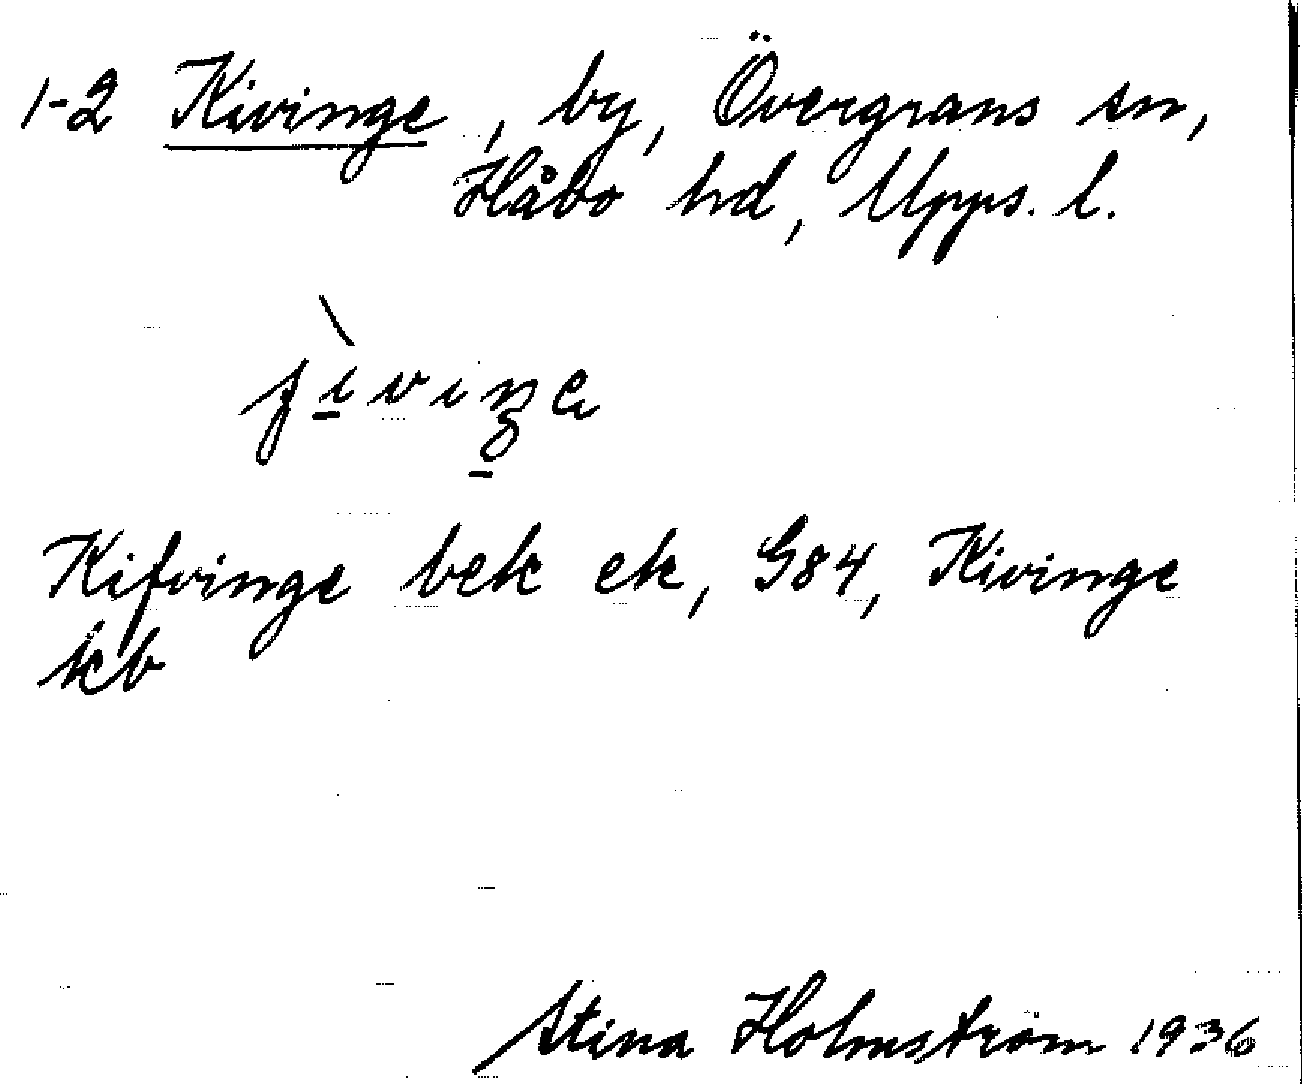 1-2 Kivinge, by, Övergrans sn,
Håbo hd, Upps. l.
Kifvinge bek ek, G84, Kivinge
kb
Stina Holmström 1936